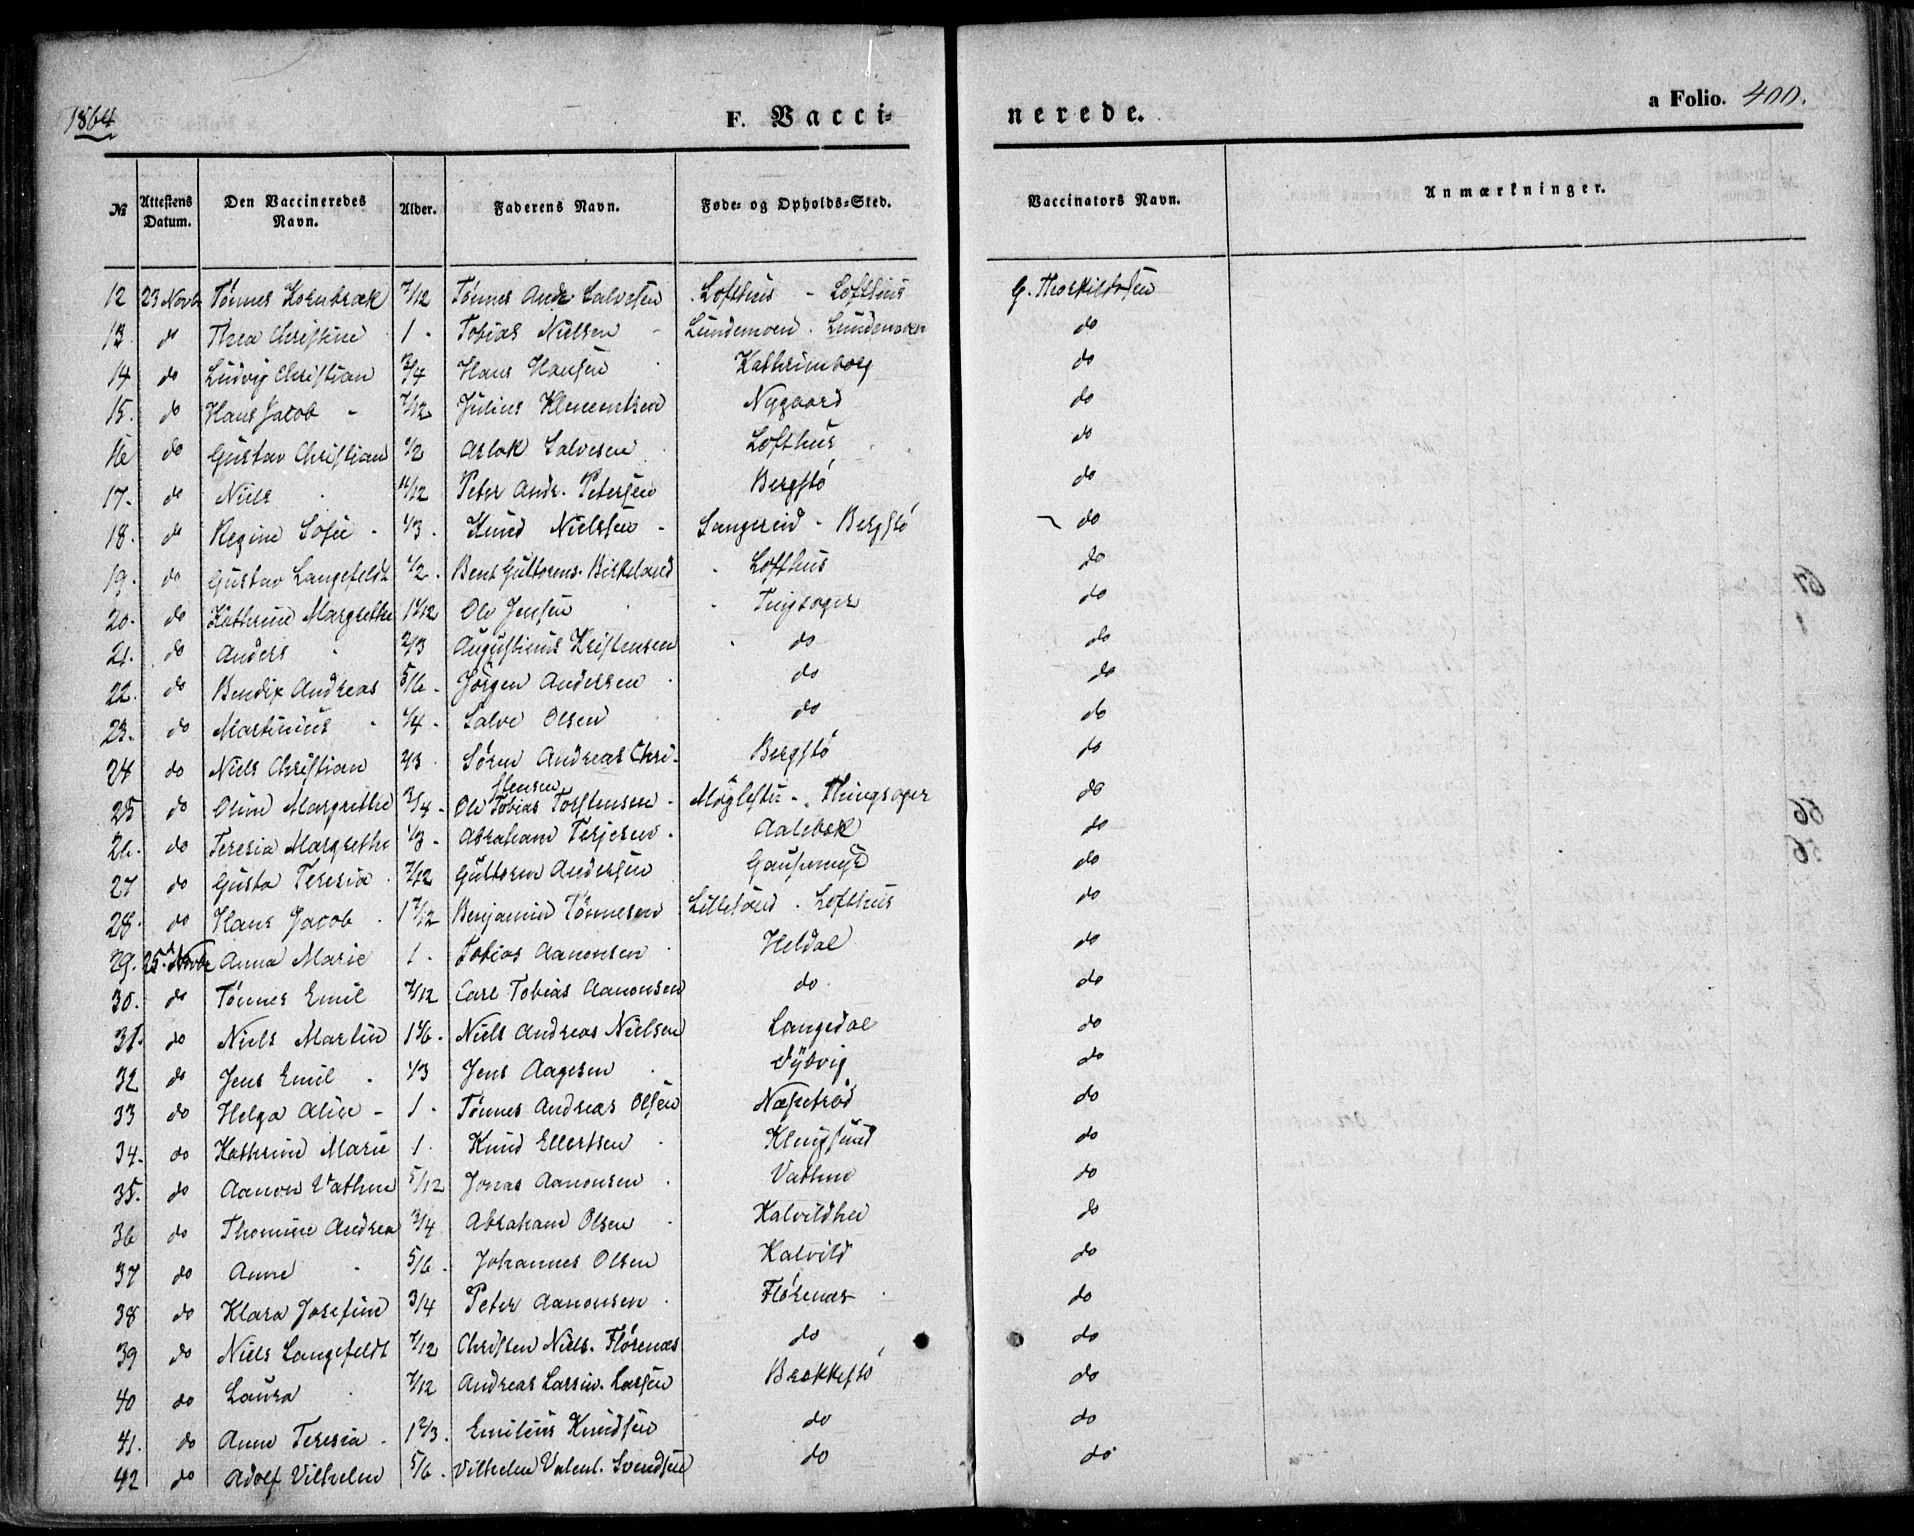 1864
F. Vacci-
nerede.
a Folio. 400.
№ Attestens Datum. Den Vaccineredes Navn. Alder. Faderens Navn. Føde- og Opholds-Sted. Vaccinators Navn. Anmærkninger.
12 23 Novb Tønnes Kornbræk 7/12 Tønnes Andr Salvesen Lofthus - Lofthus G. Thorkildsen
13. do Thea Christine 1 - Tobias Nielsen - Lundemoen - Lundemoen do
14 do Ludvig Christian 3/4 Hans Hansen Kathrinborg do
15. do Hans Jacob - 7/12 Julius Klementsen Nygaard do
16 do Gustav Christian 1/2 Aslak Salvesen Lofthus do
17. do Niels 11/12 Peter Andr. Petersen Bergstø do
18. do Regine Sofie - 1/3. Knud Nielssen - Langereid - Bergstø do
19. do Gustav Langefeldt 1/2. Bent Guttorms. Birkeland Lofthus do
20. do Kathrine Margrethe Ole Jensen Tingsager do
21. do Anders 2/3 Augustinus Kristensen do do
22. do Bendix Andreas 5/6. Jørgen Andersen do do
23. do Martinius 1/4. Salve Olsen do do
24 do Niels Christian 2/3. Søren Andreas Chri-
stensen Bergstø do
25 do Oline Margrethe 3/4. Ole Tobias Torstensen - Møglestu - Thingsager do
26. do Teresia Margrethe 1/3. Abraham Terjesen. Aalebæk do
27 do Gusta Teresia 7/12 Guttorm Andersen Gaupemyr do
28. do Hans Jacob 1 7/12 Benjamin Tønnesen Lillesand. Lofthus do
29. 25d Novbr Anna Marie 1. Tobias Aanonsen Heldal do
30. do Tønnes Emil 7/12 Carl Tobias Aanonsen do. do
31. do Niels Martin 1 1/6. Niels Andreas Nielsen Langedal do
32 do Jens Emil 1/3 Jens Aagesen Dybvig do
33 do Helga Aline - 1. Tønnes Andreas Olsen Næpetrød do
34. do Kathrine Marie 1. Knud Ellertsen Klingsund do
35. do Aanon Vathne 5/12 Jonas Aanonsen Vathne do
36 do Thomine Andrea 3/4 Abraham Olsen Kalvildhei do
37 do Anne 5/6. Johannes Olsen Kalvild do
38 do Klara Josefine 3/4 Peter Aanonsen Flørenæs do
39 do Niels Langefeldt 7/12 Christen Niels. Flørenæs do do
40 do Laura 7/12 Andreas Larsin. Larsen Brækkestø do
41. do Anne Teresia 1 2/3. Emilius Knudsen do do
42 do Adolf Vilhelm 5/6. Vilhelm Valent. Svendsen do do